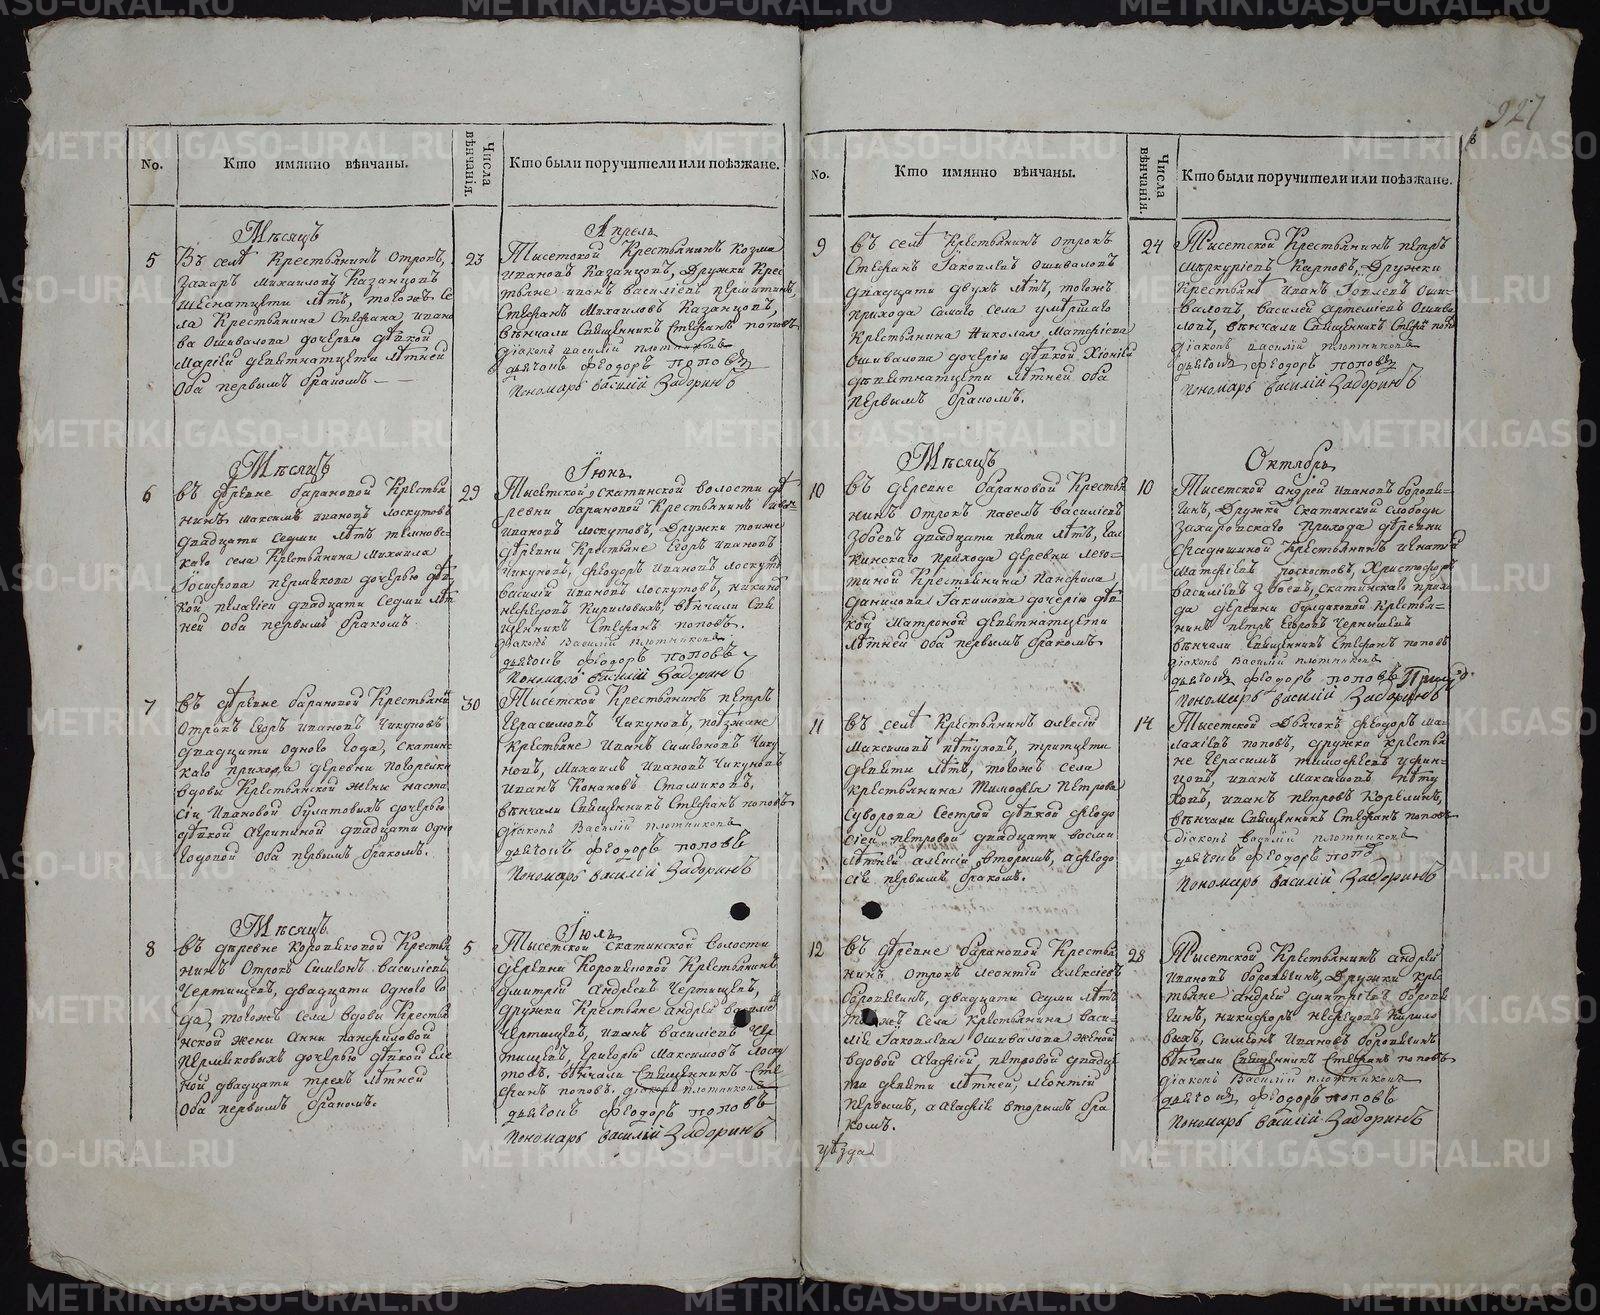 927
No.
Кто имянно вѣнчаны.
Числа вѣнчанія.
Кто были поручители или поѣзжане.
Мѣсяцъ
Апрель
5
Въ селѣ Крестьянинъ отрокъ
Захаръ Михаиловъ Казанцовъ
лѣтъ, тогожъ се
ла Крестьянина Стефана Ивано
ва Ошивалова дочерью дѣвкой
Маріей девятнатцети лѣтней
оба первымъ бракомъ
23
Тысетской Крестьянинъ Козма
Ивановъ Казанцовъ, Дружки Крес
тьяне Иванъ Василіевъ
Стефанъ Михаиловъ Казанцовъ,
вѣнчали Священникъ Стефанъ Поповъ
Діаконъ Василій Плотниковъ
дьячокъ Феодоръ Поповъ
Пономарь Василій Задоринъ
Мѣсяцъ
Іюнь
6
въ деревне Барановой Крестья
нинъ Максимъ Ивановъ Лоскутовъ
двадцати седми лѣтъ
каго села Крестьянина Михаила
Іосифова Пермякова дочерью дѣв
кой Пелагіей двадцати седми лѣт
ней оба первымъ бракомъ
29
Тысетской Скатинской волости де
ревни Барановой Крестьянинъ
Ивановъ Лоскутовъ, Дружки тоиже
деревни Крестьяне Егоръ Ивановъ
Чикуновъ, Феодоръ Ивановъ Лоскутовъ
Василій Ивановъ Лоскутовъ,
Нефедовъ Кириловыхъ, вѣнчали Свя
щенникъ Стефанъ Поповъ.
Діаконъ Василій Плотниковъ
дьячокъ Феодоръ Поповъ
Пономарь Василій Задоринъ
7
въ деревне Барановой Крестьянинъ
отрокъ Егоръ Ивановъ Чикуновъ
двадцати одного года, Скатинс
каго прихода деревни
вдовы Крестьянской жены Наста
сіи Ивановой Булатовыхъ дочерью
дѣвкой Агрипиной двадцати одно
годовой оба первымъ бракомъ.
30
Тысетской Крестьянинъ Петръ
Герасимовъ Чикуновъ, поѣзжане
Крестьяне Иванъ Симеоновъ Чику
новъ, Михаилъ Ивановъ Чикуновъ
Иванъ Конановъ Стамиковъ,
вѣнчали Священникъ Стефанъ Поповъ
Діаконъ Василій Плотниковъ
дьячокъ Феодоръ Поповъ
Пономарь Василій Задоринъ
Мѣсяцъ
Іюль
8
въ деревне Коровяковой Крестья
нинъ отрокъ Симеонъ Василіевъ
Чертищевъ, двадцати одного го
да, тогожъ села вдовы Крестья
нской жены Анны Панфиловой
Пермяковыхъ дочерью дѣвкой Еле
ной двадцати трехъ лѣтней
оба первымъ бракомъ.
5
Тысетской Скатинской волости
деревни Коровяковой Крестьянинъ
Дмитрій Андреевъ Чертищевъ,
дружки Крестьяне Андрей Василіевъ
Чертищевъ, Иванъ Василіевъ Чер
тищевъ, Григорій Максимовъ Лоску
товъ. вѣнчали Священникъ Сте
фанъ Поповъ. Діаконъ Плотниковъ
дьячокъ Феодоръ Поповъ
Пономарь Василій Задоринъ
No.
Кто имянно вѣнчаны.
Числа вѣнчанія.
Кто были поручители или поѣзжане.
9
въ селѣ Крестьянинъ отрокъ
Стефанъ Іаковлевъ Ошиваловъ
двадцати двухъ лѣтъ, тогожъ
прихода самаго села умершаго
Крестьянина Николая Матфіева
Ошивалова дочерію дѣвкой Хіоніей
девятнатцети лѣтней оба
первымъ бракомъ.
24
Тысетской Крестьянинъ Петръ
Меркуріевъ Карповъ, Дружки
Крестьяне Иванъ Іовлевъ Оши-
валовъ, Василей Артеміевъ Ошива
ловъ, вѣнчали Священникъ Стефанъ Поповъ
Діаконъ Василій Плотниковъ
дьячокъ Феодоръ Поповъ
Пономарь Василій Задоринъ
Мѣсяцъ
Октябрь
10
въ деревне Барановой Крестья
нинъ отрокъ Павелъ Василіевъ
Збоевъ двадцати пяти лѣтъ, Гал
кинскаго прихода деревни
Крестьянина Панфила
Данилова Іакимова дочерію дѣв
кой Матроной девятнатцети
лѣтней оба первымъ бракомъ.
10
Тысетской Андрей Ивановъ Боровя-
гинъ, Дружки Скатинской слободы
Захаровскаго прихода деревни
Крестьянинъ Игнатій
Матфіевъ, Христофоръ
Василіевъ Збоевъ, Скатинскаго прихо
да деревни Булдаковой Крестья-
нинъ Петръ Егоровъ Чернышевъ
вѣнчали Священникъ Стефанъ Поповъ
Діаконъ Василій Плотниковъ
дьячокъ Феодоръ Поповъ
Пономарь Василій Задоринъ
11
въ селѣ Крестьянинъ Алексій
Максимовъ Пѣтуховъ, тритцети
девяти лѣтъ, тогожъ села
Крестьянина Тимофея Петрова
Суворова сестрой дѣвкой Феодо
сіей Петровой двадцати восми
лѣтней Алексій вторымъ, а Феодо
сія первымъ бракомъ.
14
Тысетской Дьячокъ Феодоръ Ма-
лахіевъ Поповъ, дружки Крестья
не Герасимъ Тимофеевъ Уфин-
цовъ, Иванъ Максимовъ Пѣту
ховъ, Иванъ Петровъ Корелинъ,
вѣнчали Священникъ Стефанъ Поповъ
Діаконъ Василій Плотниковъ
дьячокъ Феодоръ Попов
Пономарь Василій Задоринъ
12
въ деревне Барановой Крестья
нинъ отрокъ Леонтій Алексіевъ
Боровягинъ, двадцати седми лѣтъ
села Крестьянина Васи-
лія Іаковлева Ошивалова женой
вдовой Агафіей Петровой двадца
ти девяти лѣтней, Леонтій
первымъ, а Агафія вторымъ бра
комъ.
уѣзда
28
Тысетской Крестьянинъ Андрей
Ивановъ Боровягинъ, Дружки Крес
тьяне Андрей Дмитріевъ Боровя
гинъ, Никифоръ Нефедовъ Кирило
выхъ, Симеонъ Ивановъ Боровягинъ
вѣнчали Священникъ Стефанъ Поповъ
Діаконъ Василій Плотниковъ
дьячокъ Феодоръ Поповъ
Пономарь Василій Задоринъ
METRIKI.GASO-URAL.RU